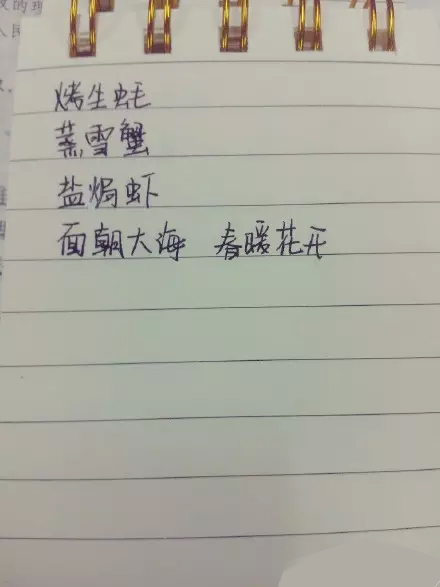 烤生蚝
蒸雪蟹
盐焗虾
面朝大海 春暖花开